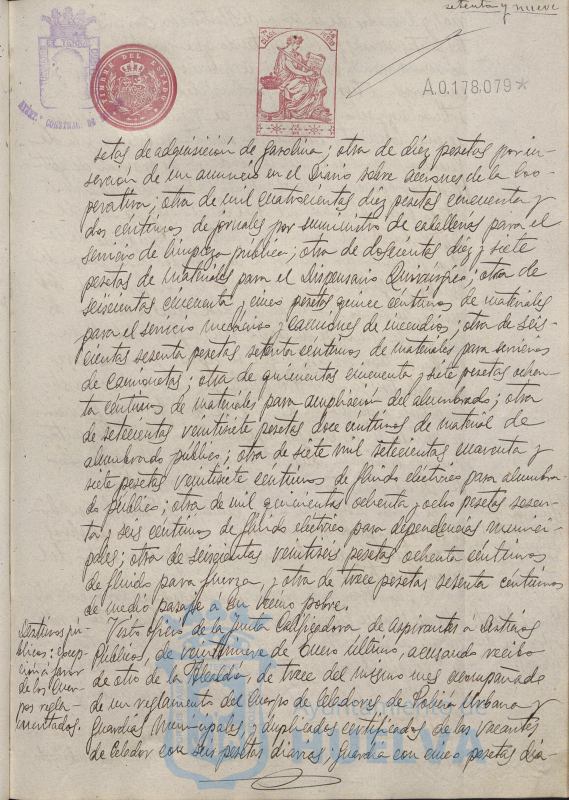 setenta y nueve
TIMBRE DEL ESTADO
A.0.178.079*
setas de adquisición de gasolina; otra de diez pesetas por in-
serción de un anuncio en el Diario sobre acciones de la Coo-
perativa; otra de mil cuatrocientas diez pesetas cincuenta y
dos céntimos de jornales por suministro de caballerías para el
servicio de limpieza pública; otra de doscientas diez y siete
pesetas de materiales para el Dispensario Quirúrgico; otra de
seiscientas cincuenta y cinco pesetas quince céntimos de materiales
para el servicio mecánico y camiones de incendios; otra de seis-
cientas sesenta pesetas setenta céntimos de materiales para servicios
de camionetas; otra de quinientas cincuenta y siete pesetas ochen-
ta céntimos de materiales para ampliación del alumbrado; otra
de setecientas veintisiete pesetas doce céntimos de material de
alumbrado público; otra de siete mil setecientas cuarenta y
siete pesetas veintisiete céntimos de fluido eléctrico para alumbra-
do público; otra de mil quinientas ochenta y ocho pesetas sesen-
ta y seis céntimos de fluido eléctrico para dependencias munici-
pales; otra de seiscientas veintiseis pesetas ochenta céntimos
de fluido para fuerza, y otra de trece pesetas sesenta céntimos
de medio pasaje a un vecino pobre.
Destinos pú-
blicos: excep-
ción a favor
de los Cuer-
pos regla-
mentados.
Visto oficio de la Junta Calificadora de aspirantes a Destinos
Públicos, de veintinueve de Enero último, acusando recibo
de otro de la Alcaldía, de trece del mismo mes acompañado
de un reglamento del Cuerpo de Celadores de Policía Urbana y
Guardias Municipales y duplicados certificados de las vacantes
de Celador con seis pesetas diarias; Guardia con cinco pesetas dia-